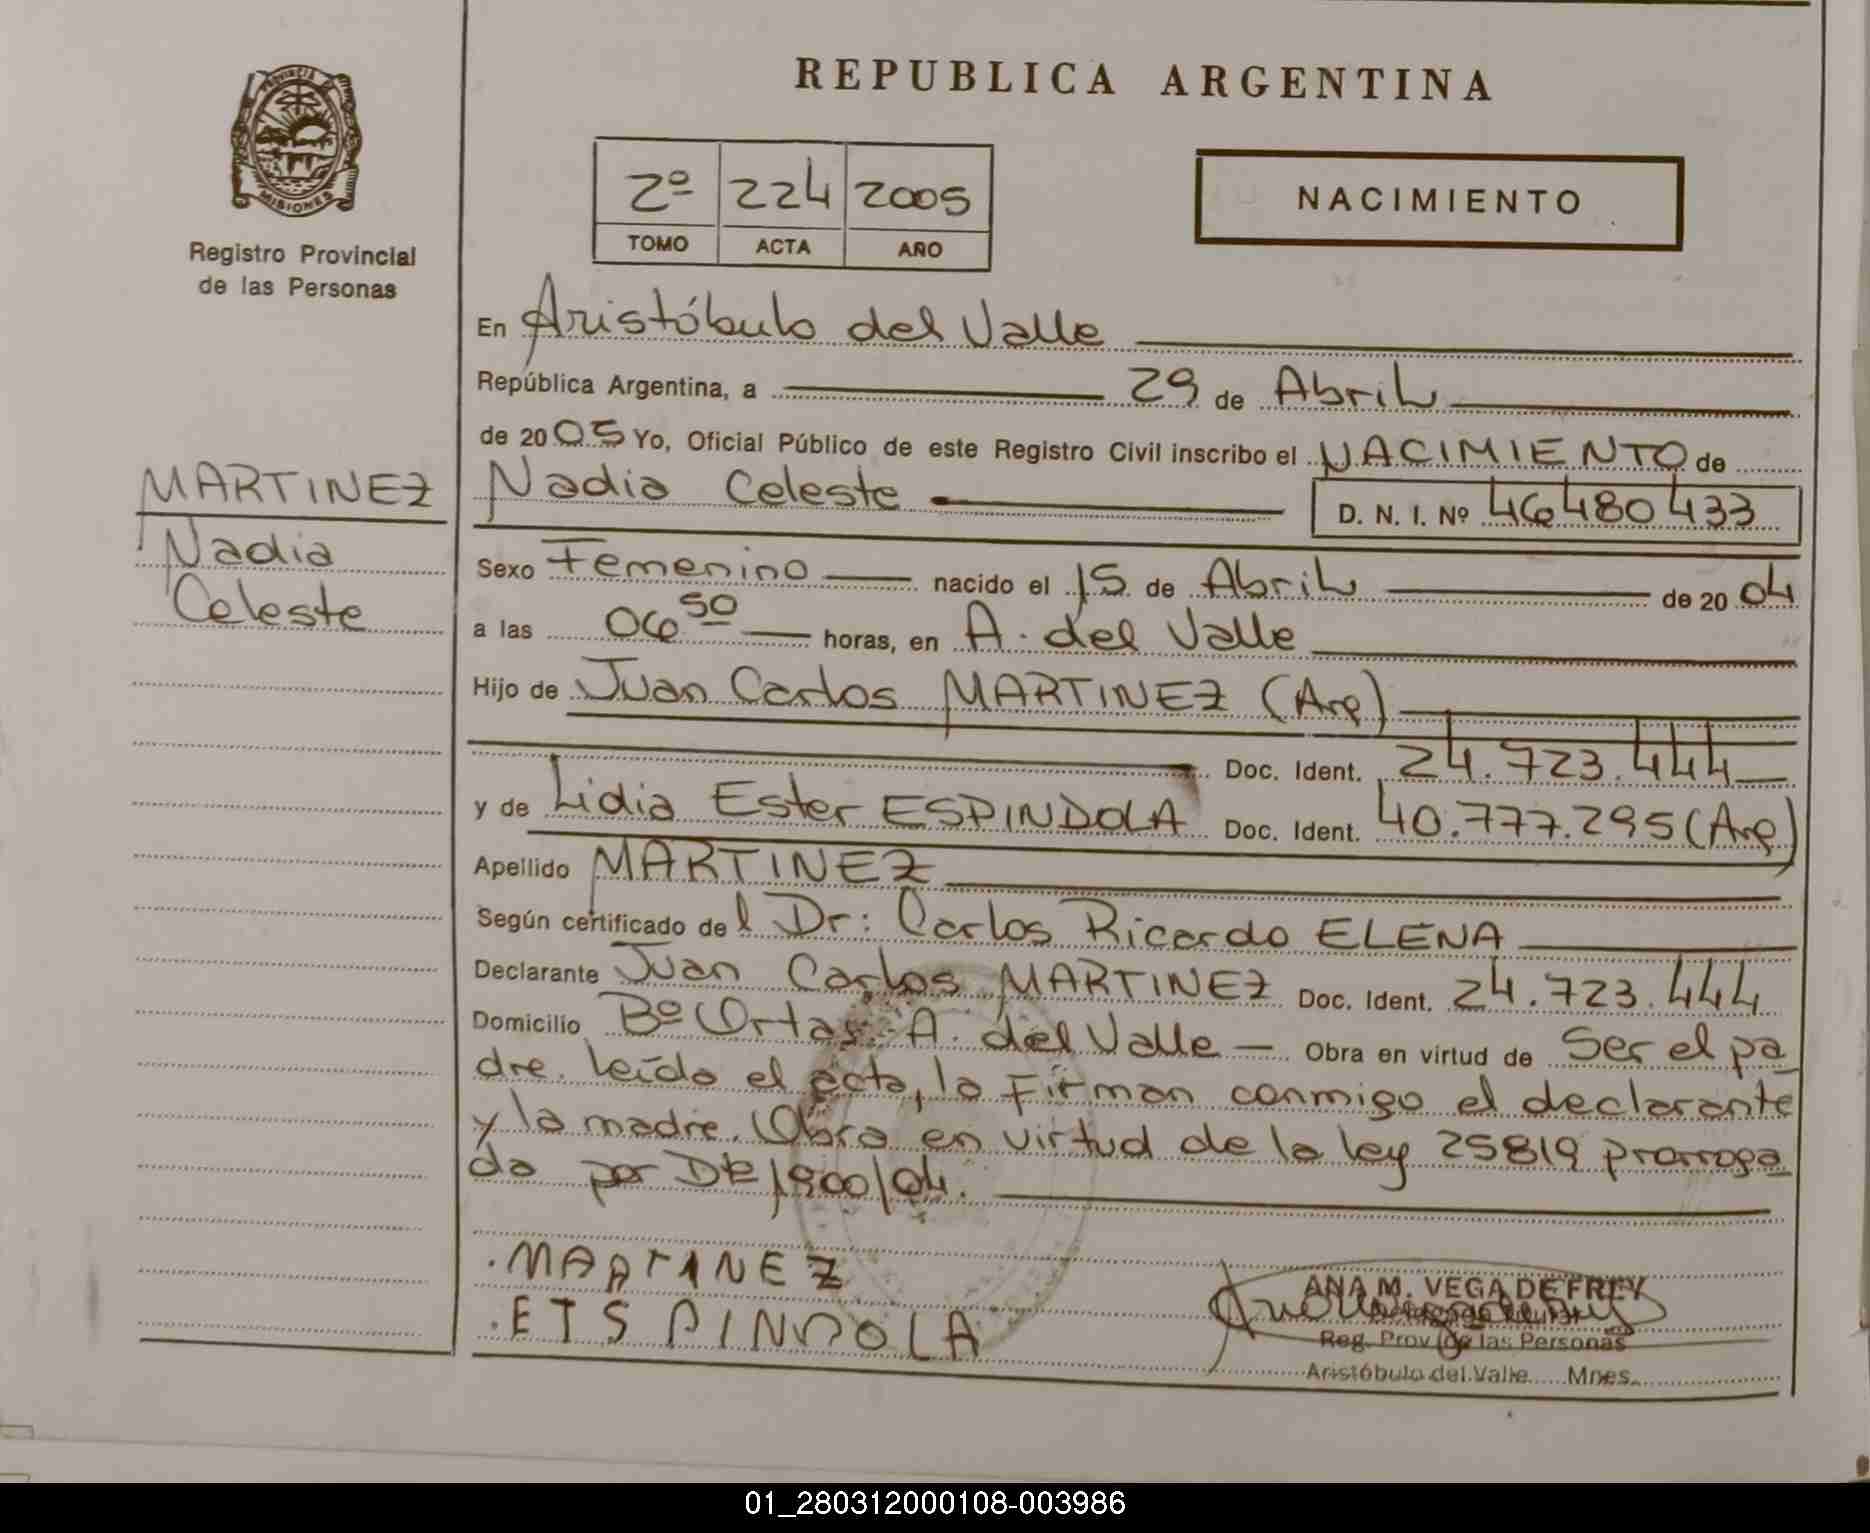 REPUBLICA ARGENTINA
PROVINCIA DE MISIONES
Registro Provincial
de las Personas
2º 224 2005
TOMO ACTA AÑO
NACIMIENTO
En Aristóbulo del Valle
República Argentina, a 29 de Abril
de 2005 Yo, Oficial Público de este Registro Civil inscribo el NACIMIENTO de
MARTINEZ
Nadia
Celeste
Nadia Celeste D. N. I. Nº 46480433
Sexo Femenino nacido el 15 de Abril de 2004
a las 06 50 horas, en A. del Valle
Hijo de Juan Carlos MARTINEZ (Arg)
Doc. Ident. 24.723.444
y de Lidia Ester ESPINDOLA Doc. Ident. 40.777.295 (Arg)
Apellido MARTINEZ
Según certificado del Dr: Carlos Ricardo ELENA
Declarante Juan Carlos MARTINEZ Doc. Ident. 24.723.444
Domicilio Bº Ortas A. del Valle Obra en virtud de Ser el pa
dre. leído el acta, la Firman conmigo el declarante
y la madre. Obra en virtud de la ley 25819 prorroga
da por 1900/04.
.MARTINEZ
.ETSPINDOLA
ANA M. VEGA DE FREY
Reg. Prov. de las Personas
Aristóbulo del Valle Mnes.
01_280312000108-003986